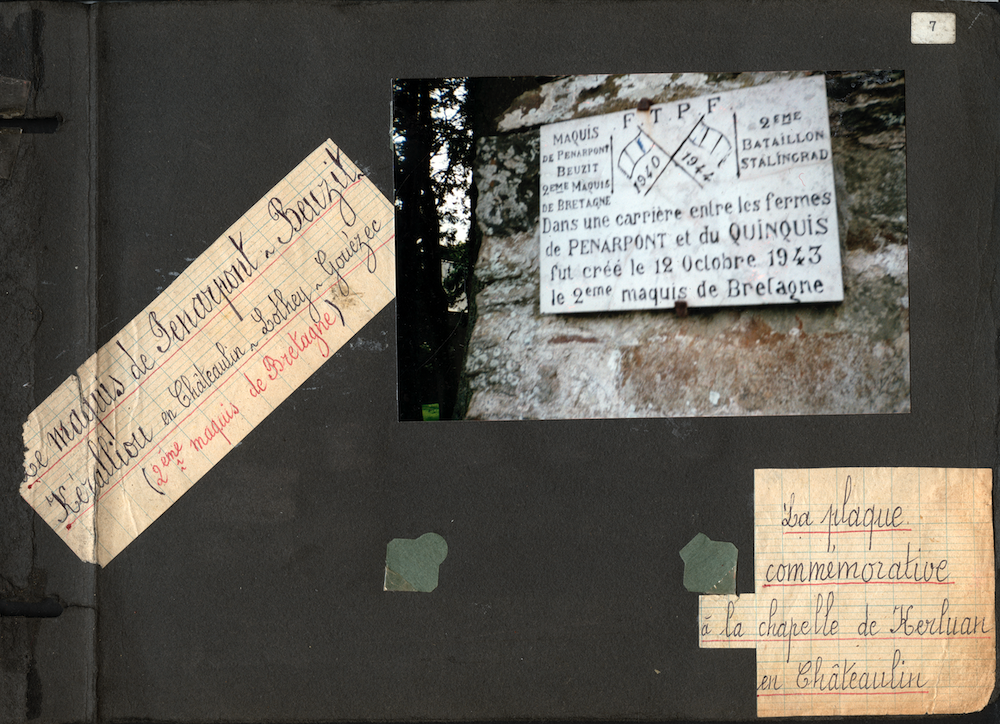 7
Le maquis de Penarpont - Beuzit
Kéralliou en Châteaulin - Lothey - Gouézec
(2ème maquis de Bretagne)
F.T.P.F
MAQUIS
DE PENARPONT
BEUZIT
2EME MAQUIS
DE BRETAGNE
1940
1944
2EME
BATAILLON
STALINGRAD
Dans une carrière entre les fermes
de PENARPONT et du QUINQUIS
fut créé le 12 Octobre 1943
le 2eme maquis de Bretagne
La plaque
commémorative
à la chapelle de Kerluan
en Châteaulin